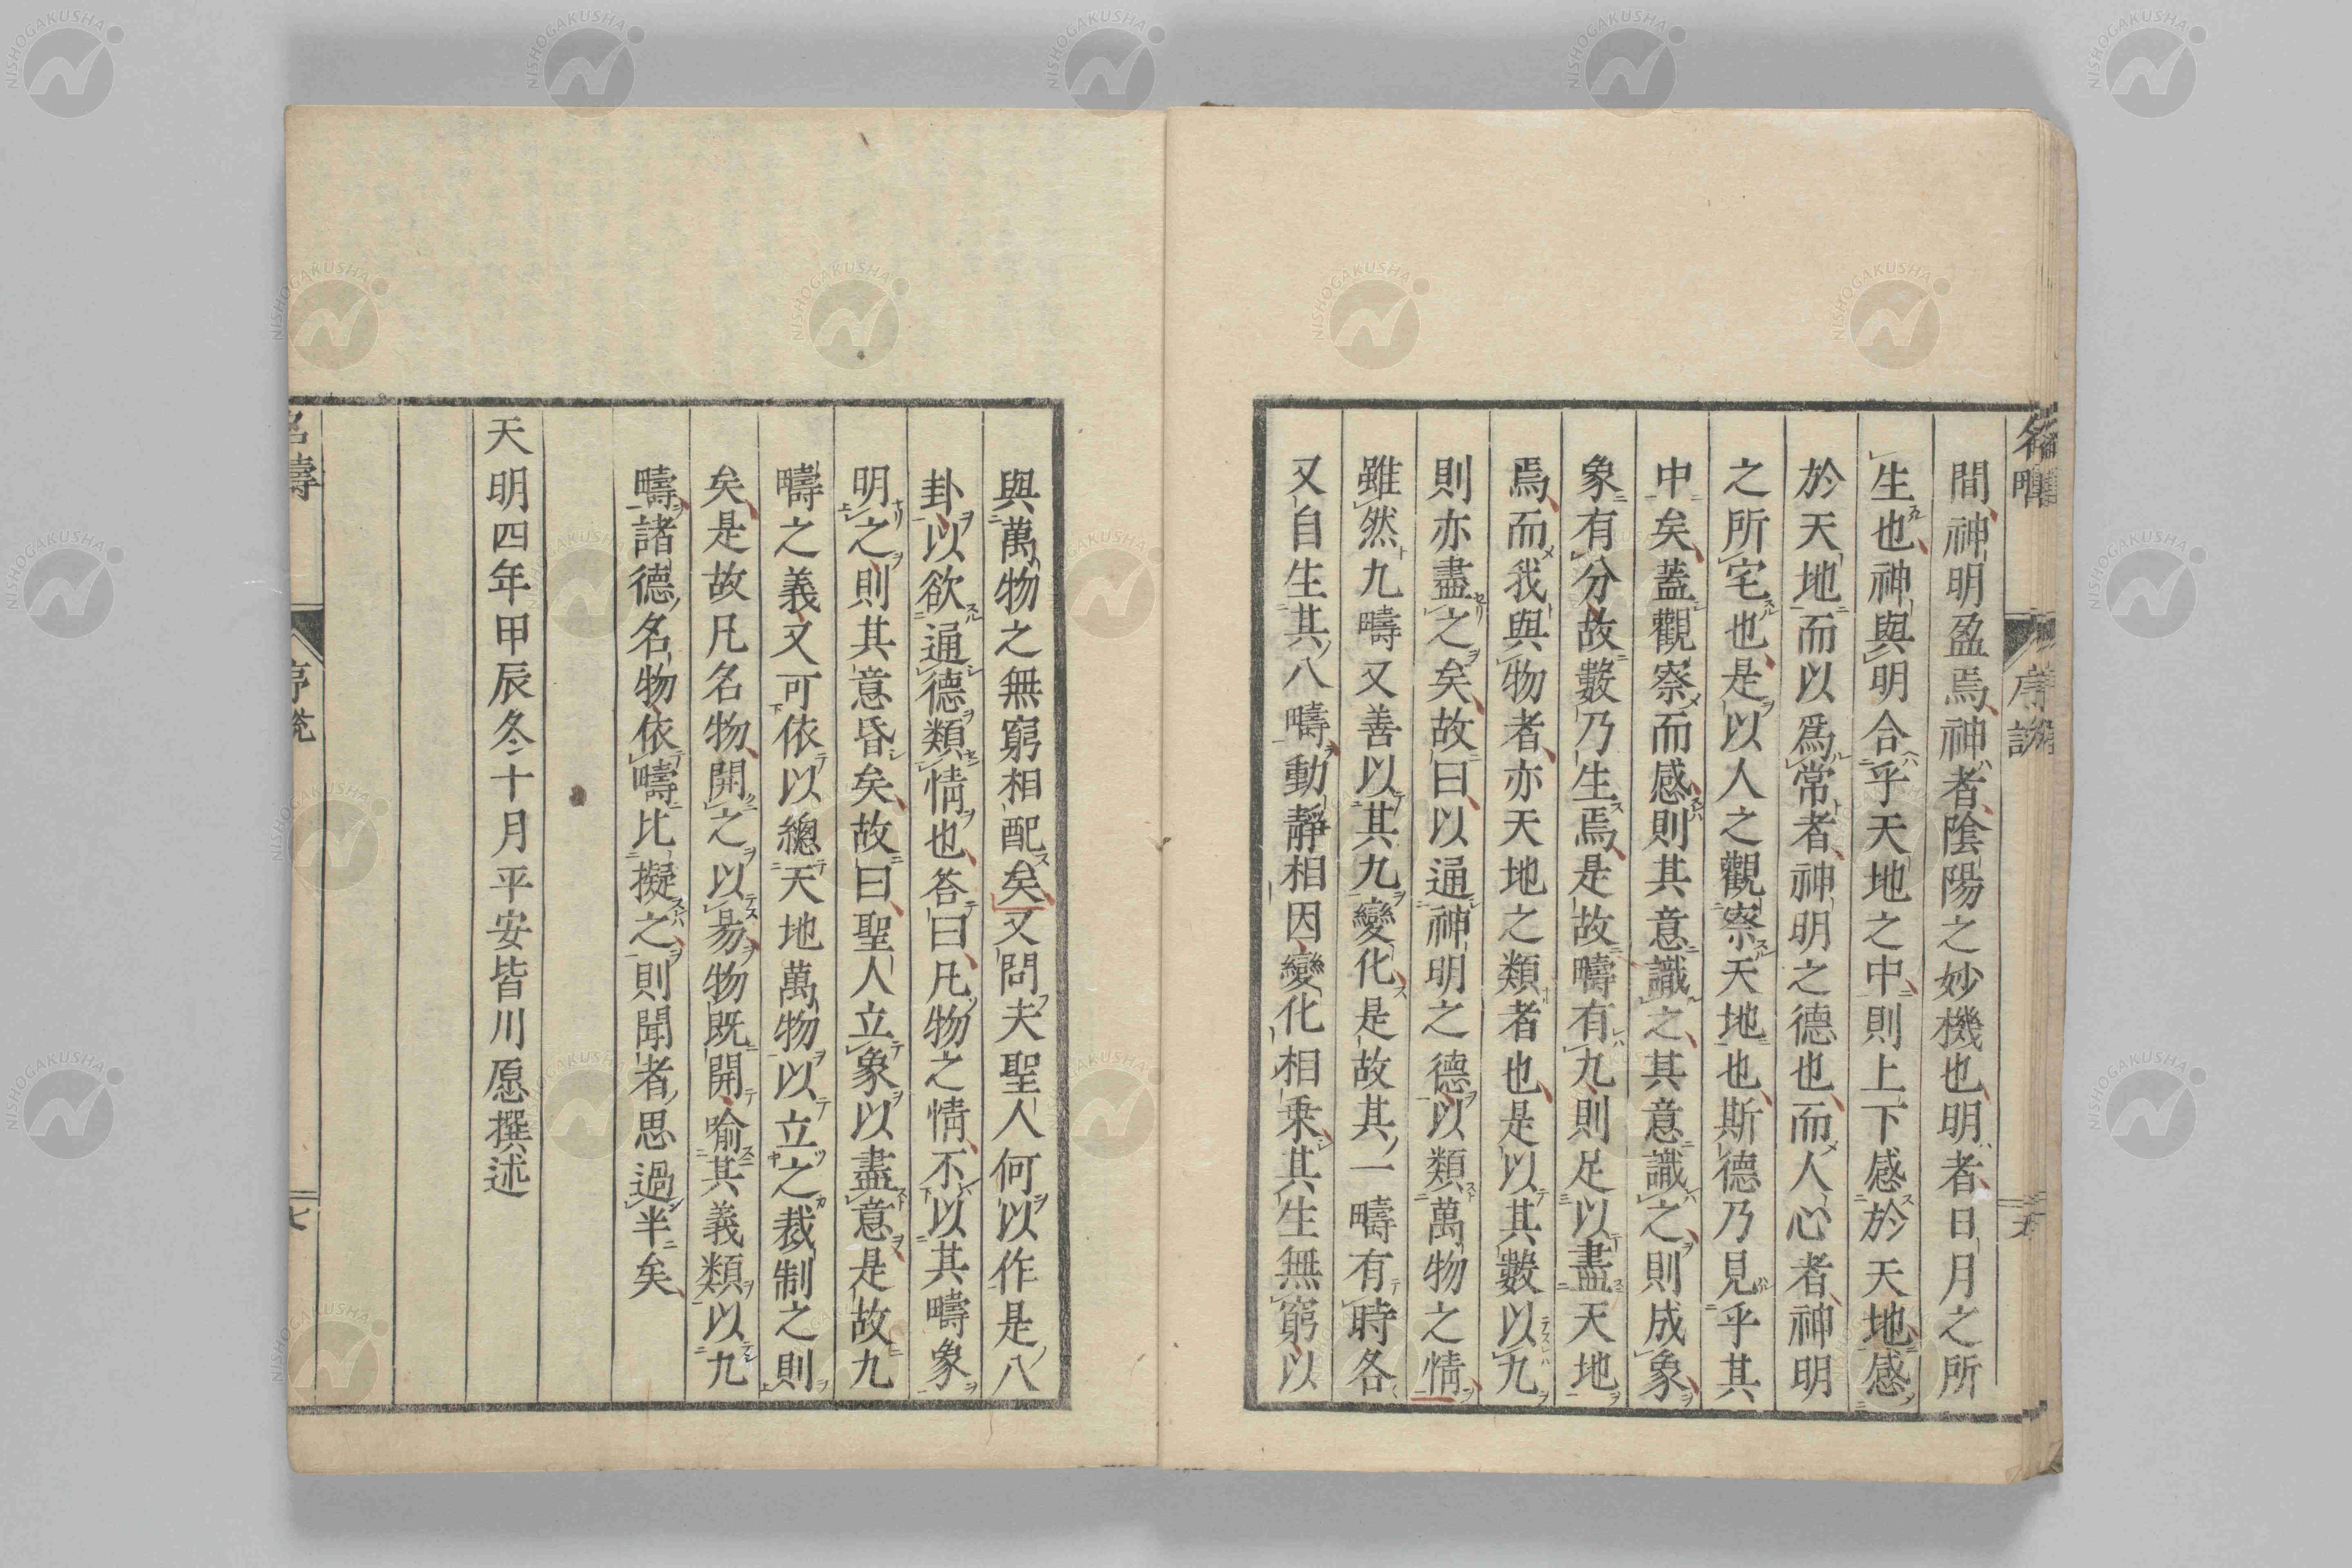 間神明盈焉神者陰陽之妙機也明者日月之所
生也神與明合乎天地之中則上下感於天地感
於天地而以爲常者神明之德也而人心者神明
之所宅也是以人之觀察天地也斯德乃見乎其
中矣蓋觀察而感則其意識之其意識之則成象
象有分故數乃生焉是故疇有九則足以盡天地
焉而我與物者亦天地之類者也是以其數以九
則亦盡之矣故曰以通神明之德以類萬物之情
雖然九疇又善以其九變化是故其一疇有時各
又自生其八疇動靜相因變化相乗其生無窮以
與萬物之無窮相配矣又問夫聖人何以作是八
卦以欲通德類情也答曰凡物之情不以其疇象
明之則其意昏矣故曰聖人立象以盡意是故九
疇之義又可依以總天地萬物以立之裁制之則
矣是故凡名物開之以昜物既開喻其義類以九
疇諸德名物依疇比擬之則聞者思過半矣
天明四年甲辰冬十月平安皆川愿撰述
名疇
序
七
NISHOGAKUSHA